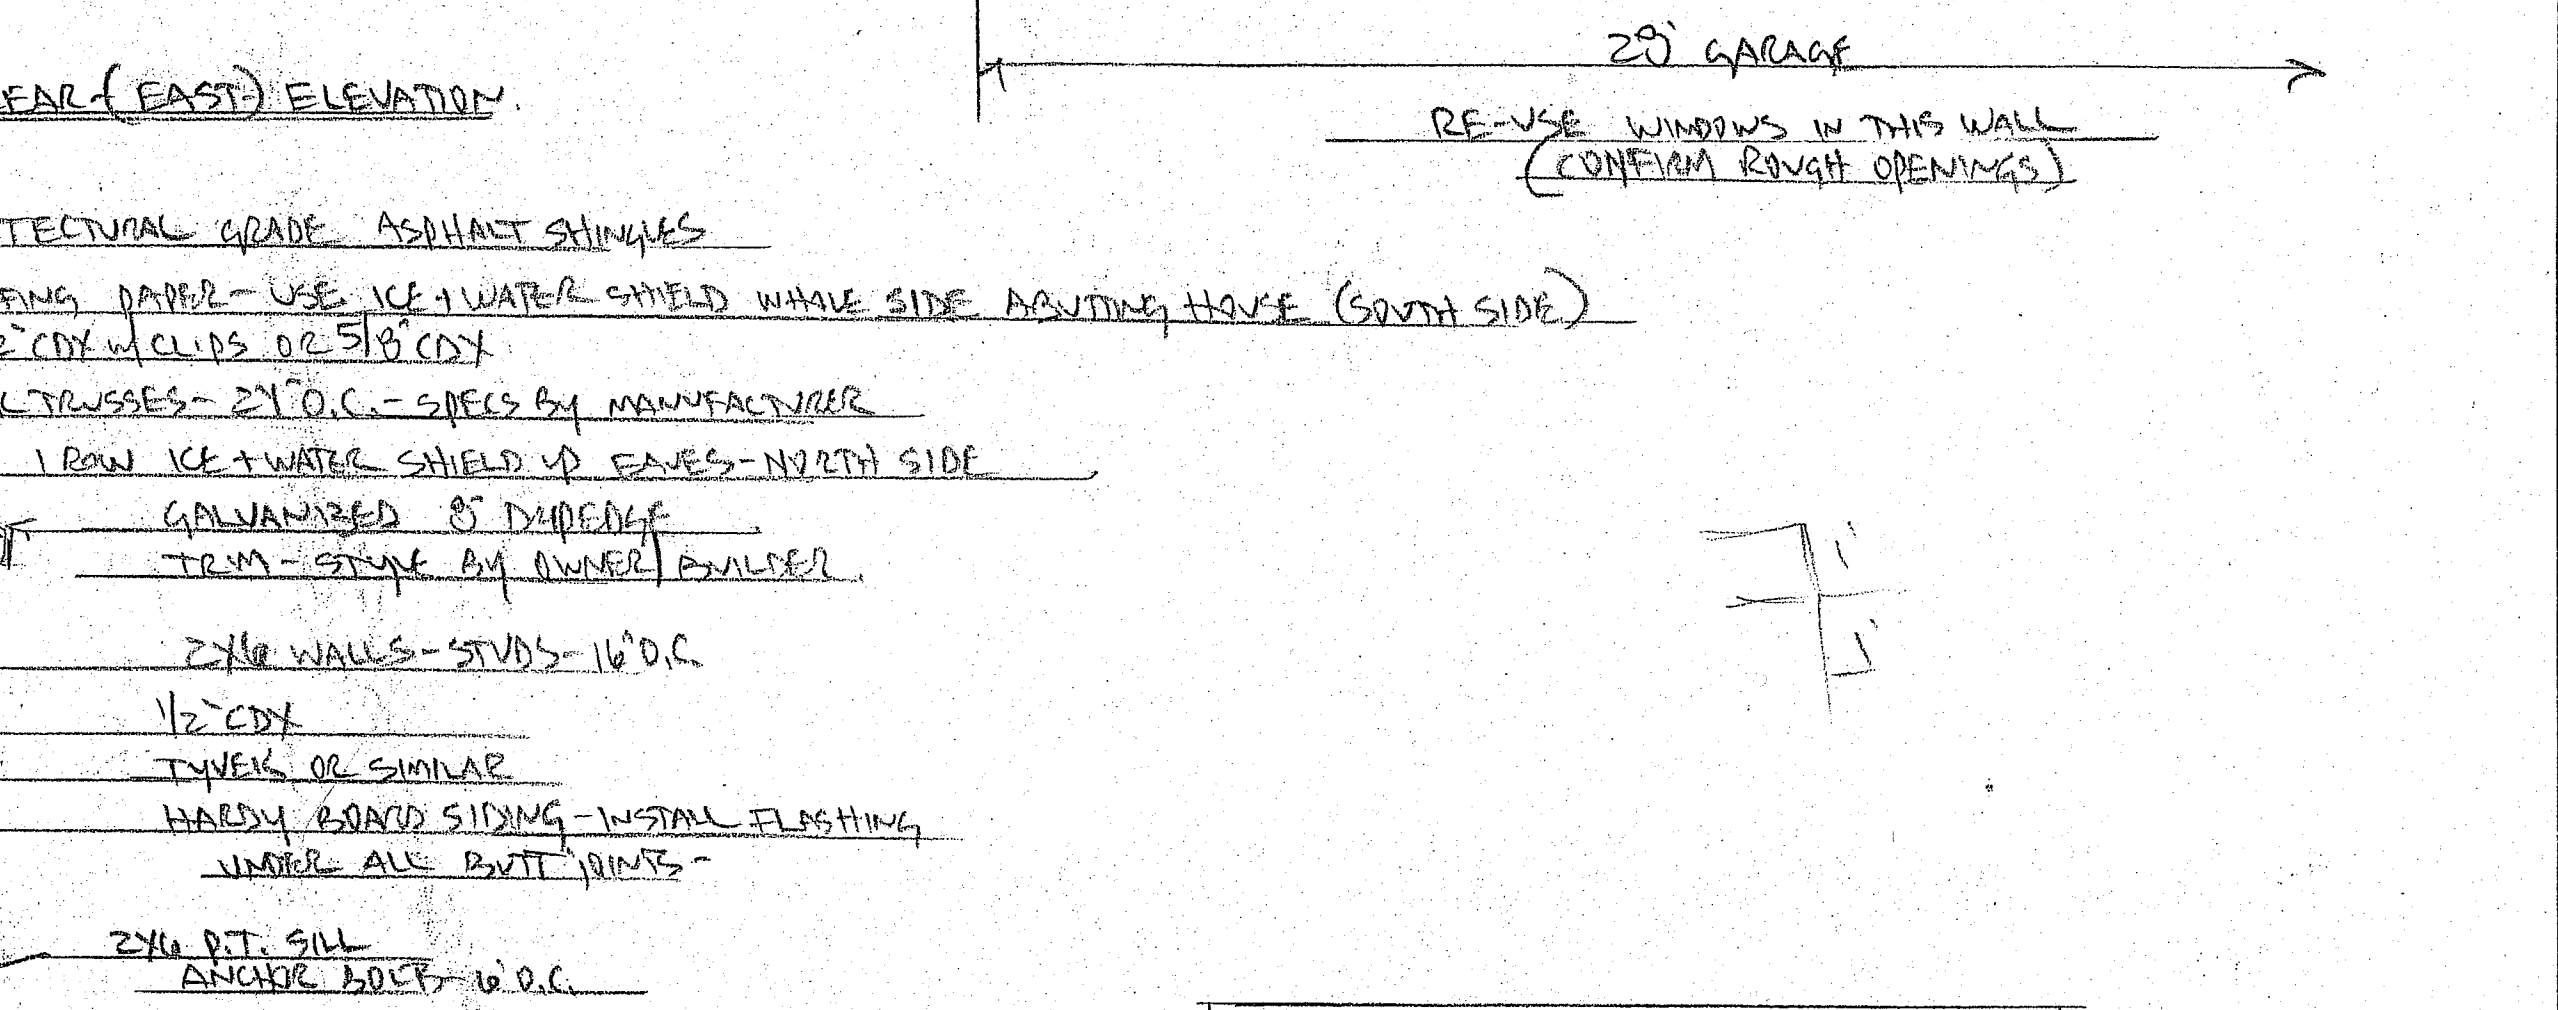 28' GARAGE
EAR (EAST) ELEVATION
RE-USE WINDOWS IN THIS WALL
(CONFIRM ROUGH OPENINGS)
TECTURAL GRADE ASPHALT SHINGLES
FING PAPER - USE ICE + WATER SHIELD WHOLE SIDE ABUTTING HOUSE (SOUTH SIDE)
2" CDX w/ CLIPS OR 5/8" CDX
L TRUSSES - 24" O.C. - SPECS BY MANUFACTURER
1 ROW ICE + WATER SHIELD UP EAVES - NORTH SIDE
GALVANIZED 8" DRIPEDGE
TRIM - STYLE BY OWNER/BUILDER
1'
1'
2X6 WALLS - STUDS - 16" O.C.
1/2" CDX
TYVEK OR SIMILAR
HARDY BOARD SIDING - INSTALL FLASHING
UNDER ALL BUTT JOINTS -
2X6 P.T. SILL
ANCHOR BOLTS - 6' O.C.